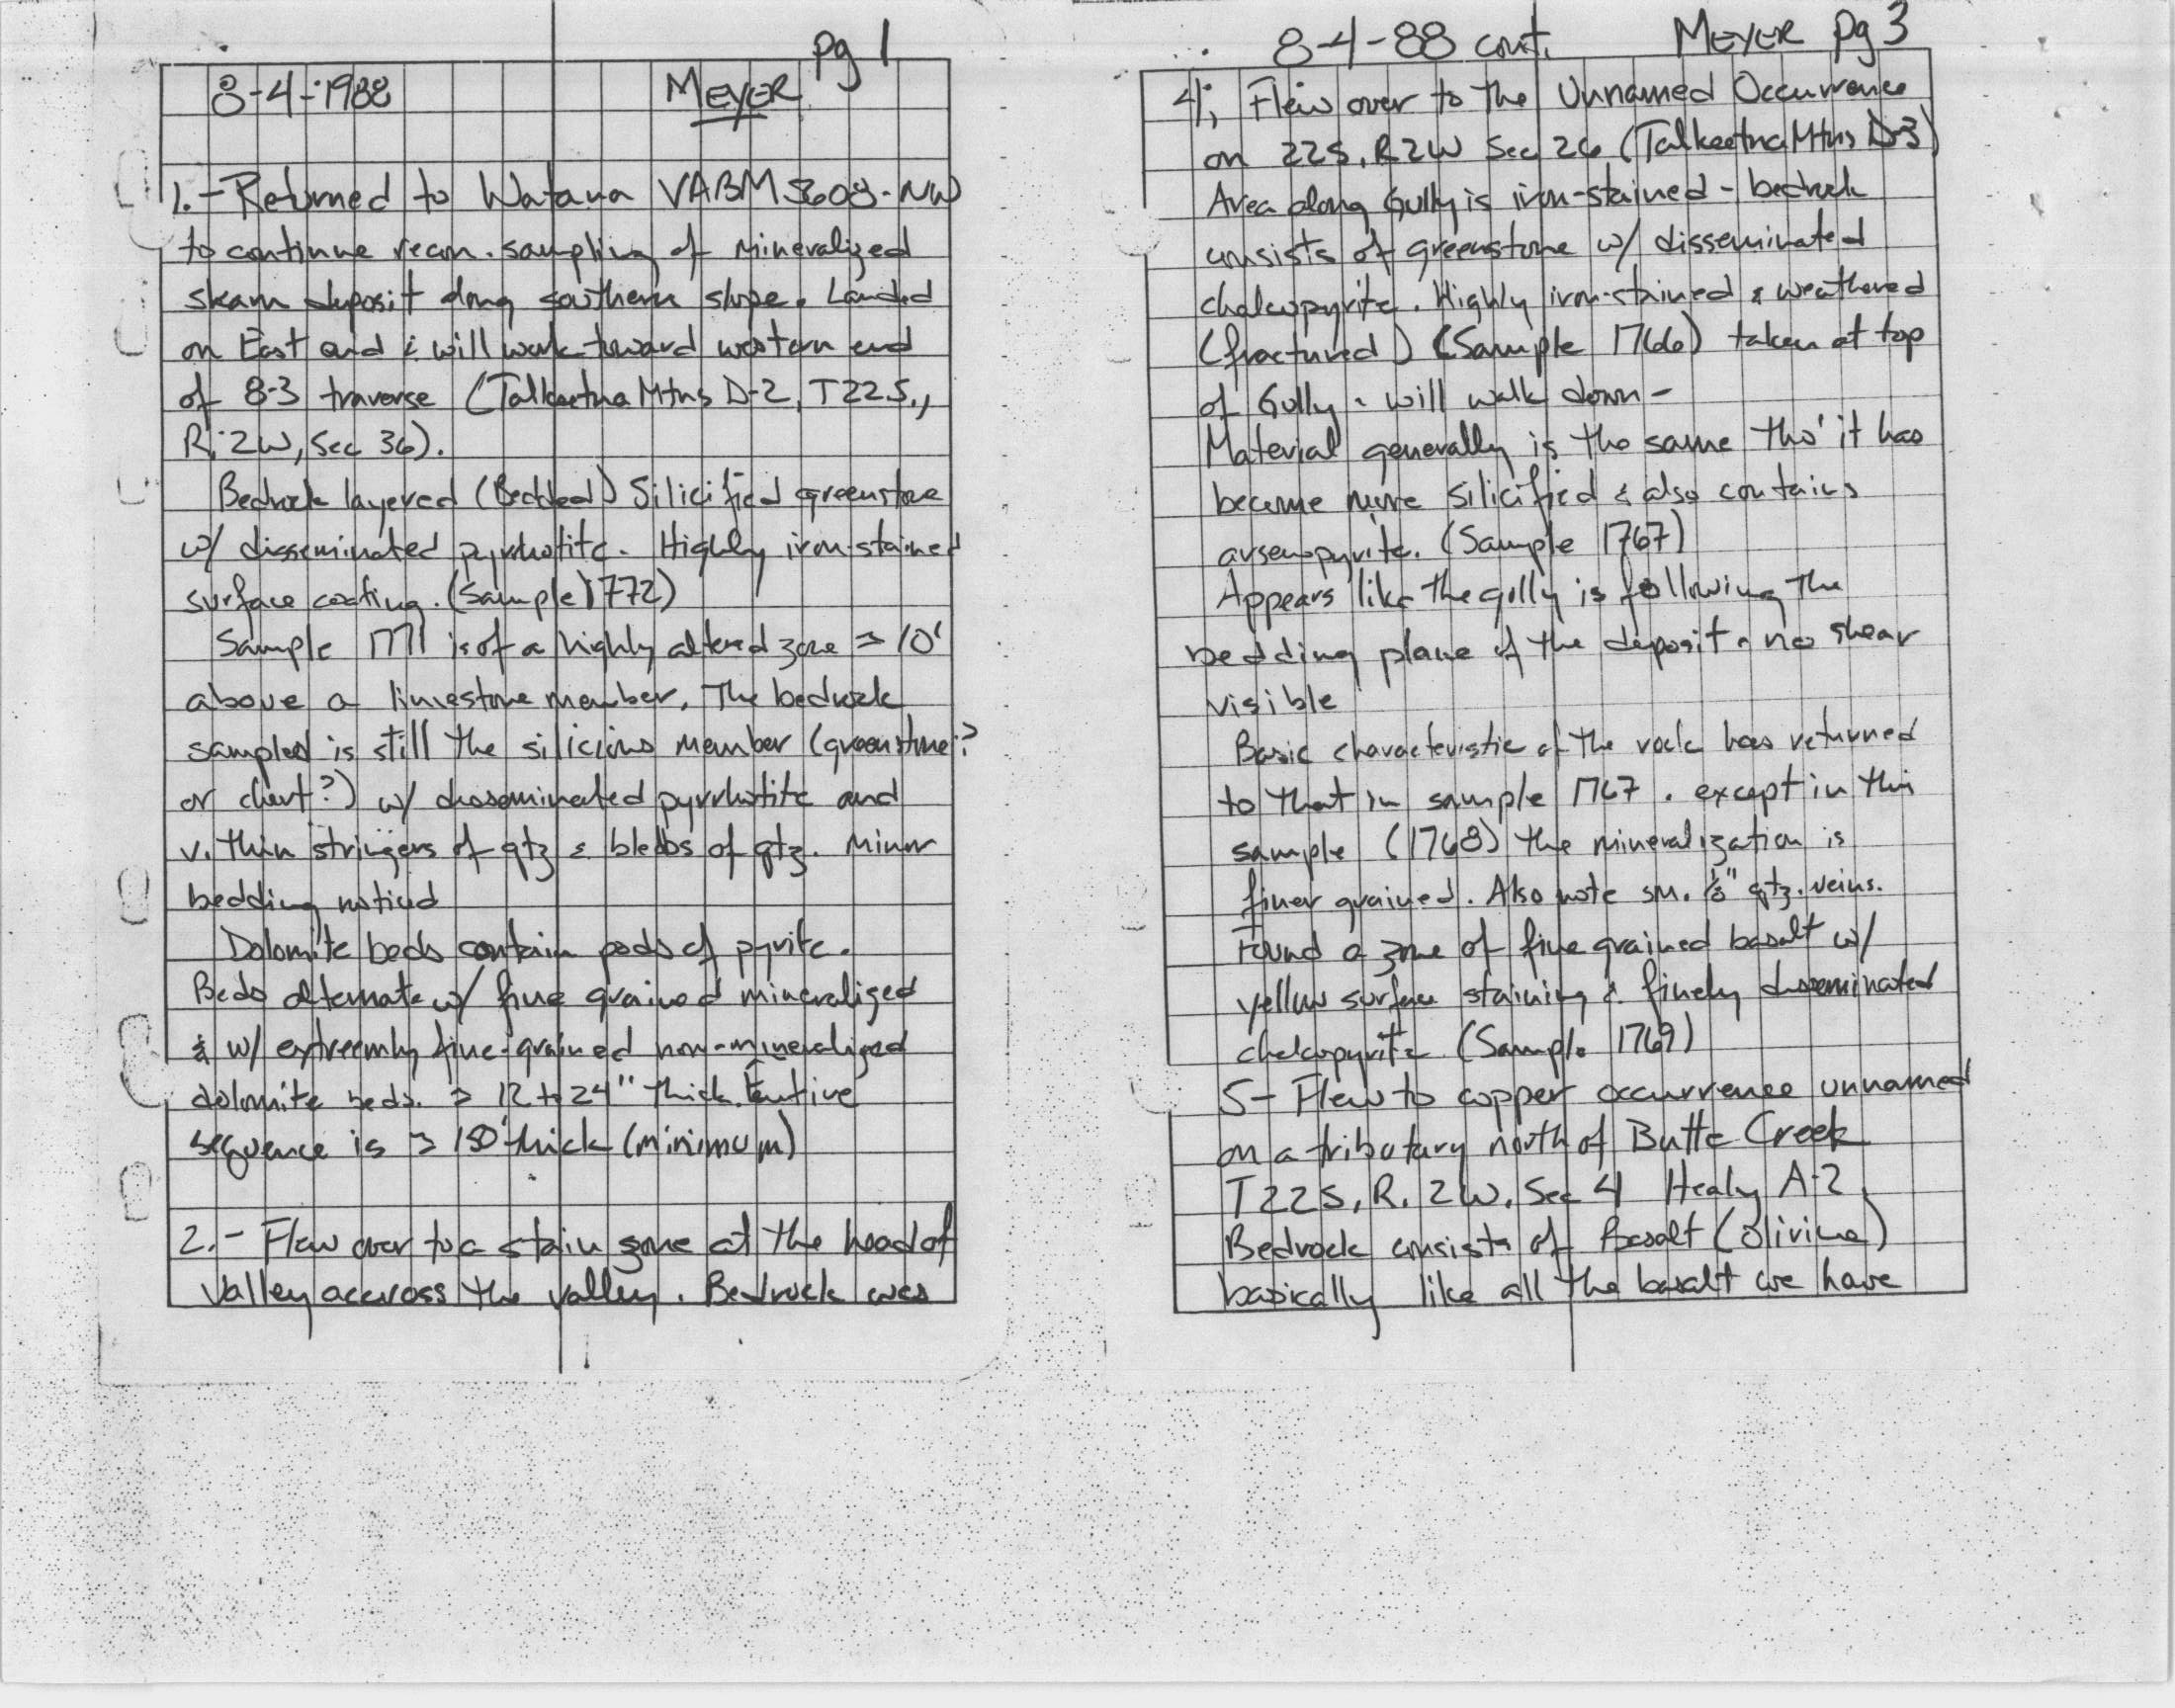 pg 1
8-4-1988 MEYER
1.- Returned to Watana VABM 5608-NW
to continue recon. sampling of mineralized
skarn deposit along southern slope. Landed
on East end & will work toward western end
of 8-3 traverse (Talkeetna Mtns D-2, T22S.,
R. 2W, Sec 36).
Bedrock layered (Bedded) Silicified greenstone
w/ disseminated pyrrhotite. Highly iron-stained
surface coating. (Sample 1772)
Sample 1771 is of a highly altered zone ≈ 10'
above a limestone member. The bedrock
sampled is still the silicious member (greenstone?
or chert?) w/ disseminated pyrrhotite and
v. thin stringers of qtz & blebbs of qtz. Minor
bedding noticed
Dolomite beds contain pods of pyrite.
Beds alternate w/ fine grained mineralized
& w/ extreemly fine-grained non-mineralized
dolomite beds. ≈ 12 to 24" thick. Entire
sequence is ≈ 150' thick (minimum)
2.- Flew over to a stain zone at the head of
valley accross the valley. Bedrock was
8-4-88 cont. MEYER pg 3
4; Flew over to the Unnamed Occurrence
on 22S, R2W Sec 26 (Talkeetna Mtns D-3)
Area along Gully is iron-stained - bedrock
consists of greenstone w/ disseminated
chalcopyrite. Highly iron-stained & weathered
(fractured) (Sample 1766) taken at top
of Gully - will walk down -
Material generally is the same tho' it has
become more silicified & also contains
arsenopyrite. (Sample 1767)
Appears like the gully is following the
bedding plane of the deposit - no shear
visible
Basic characteristic of the rock has returned
to that in sample 1767 . except in this
sample (1768) the mineralization is
finer grained. Also note sm. 1/8" qtz. veins.
Found a zone of fine grained basalt w/
yellow surface staining & finely disseminated
chalcopyrite (Sample 1769)
5- Flew to copper occurrence unnamed
on a tributary north of Butte Creek
T22S, R. 2W, Sec 4 Healy A-2
Bedrock consists of Basalt (olivine)
basically like all the basalt we have